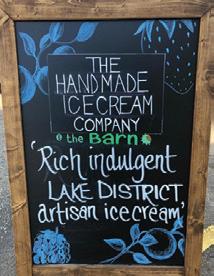 THE
HANDMADE
ICECREAM
COMPANY
@ the Barn
'Rich indulgent
LAKE DISTRICT
artisan icecream'